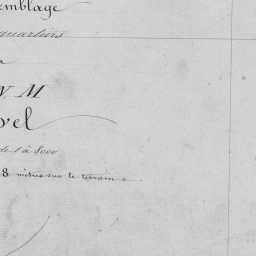 emblage
quartiers
V M
vel
de 1 à 5000
8 mètres sur le terrain